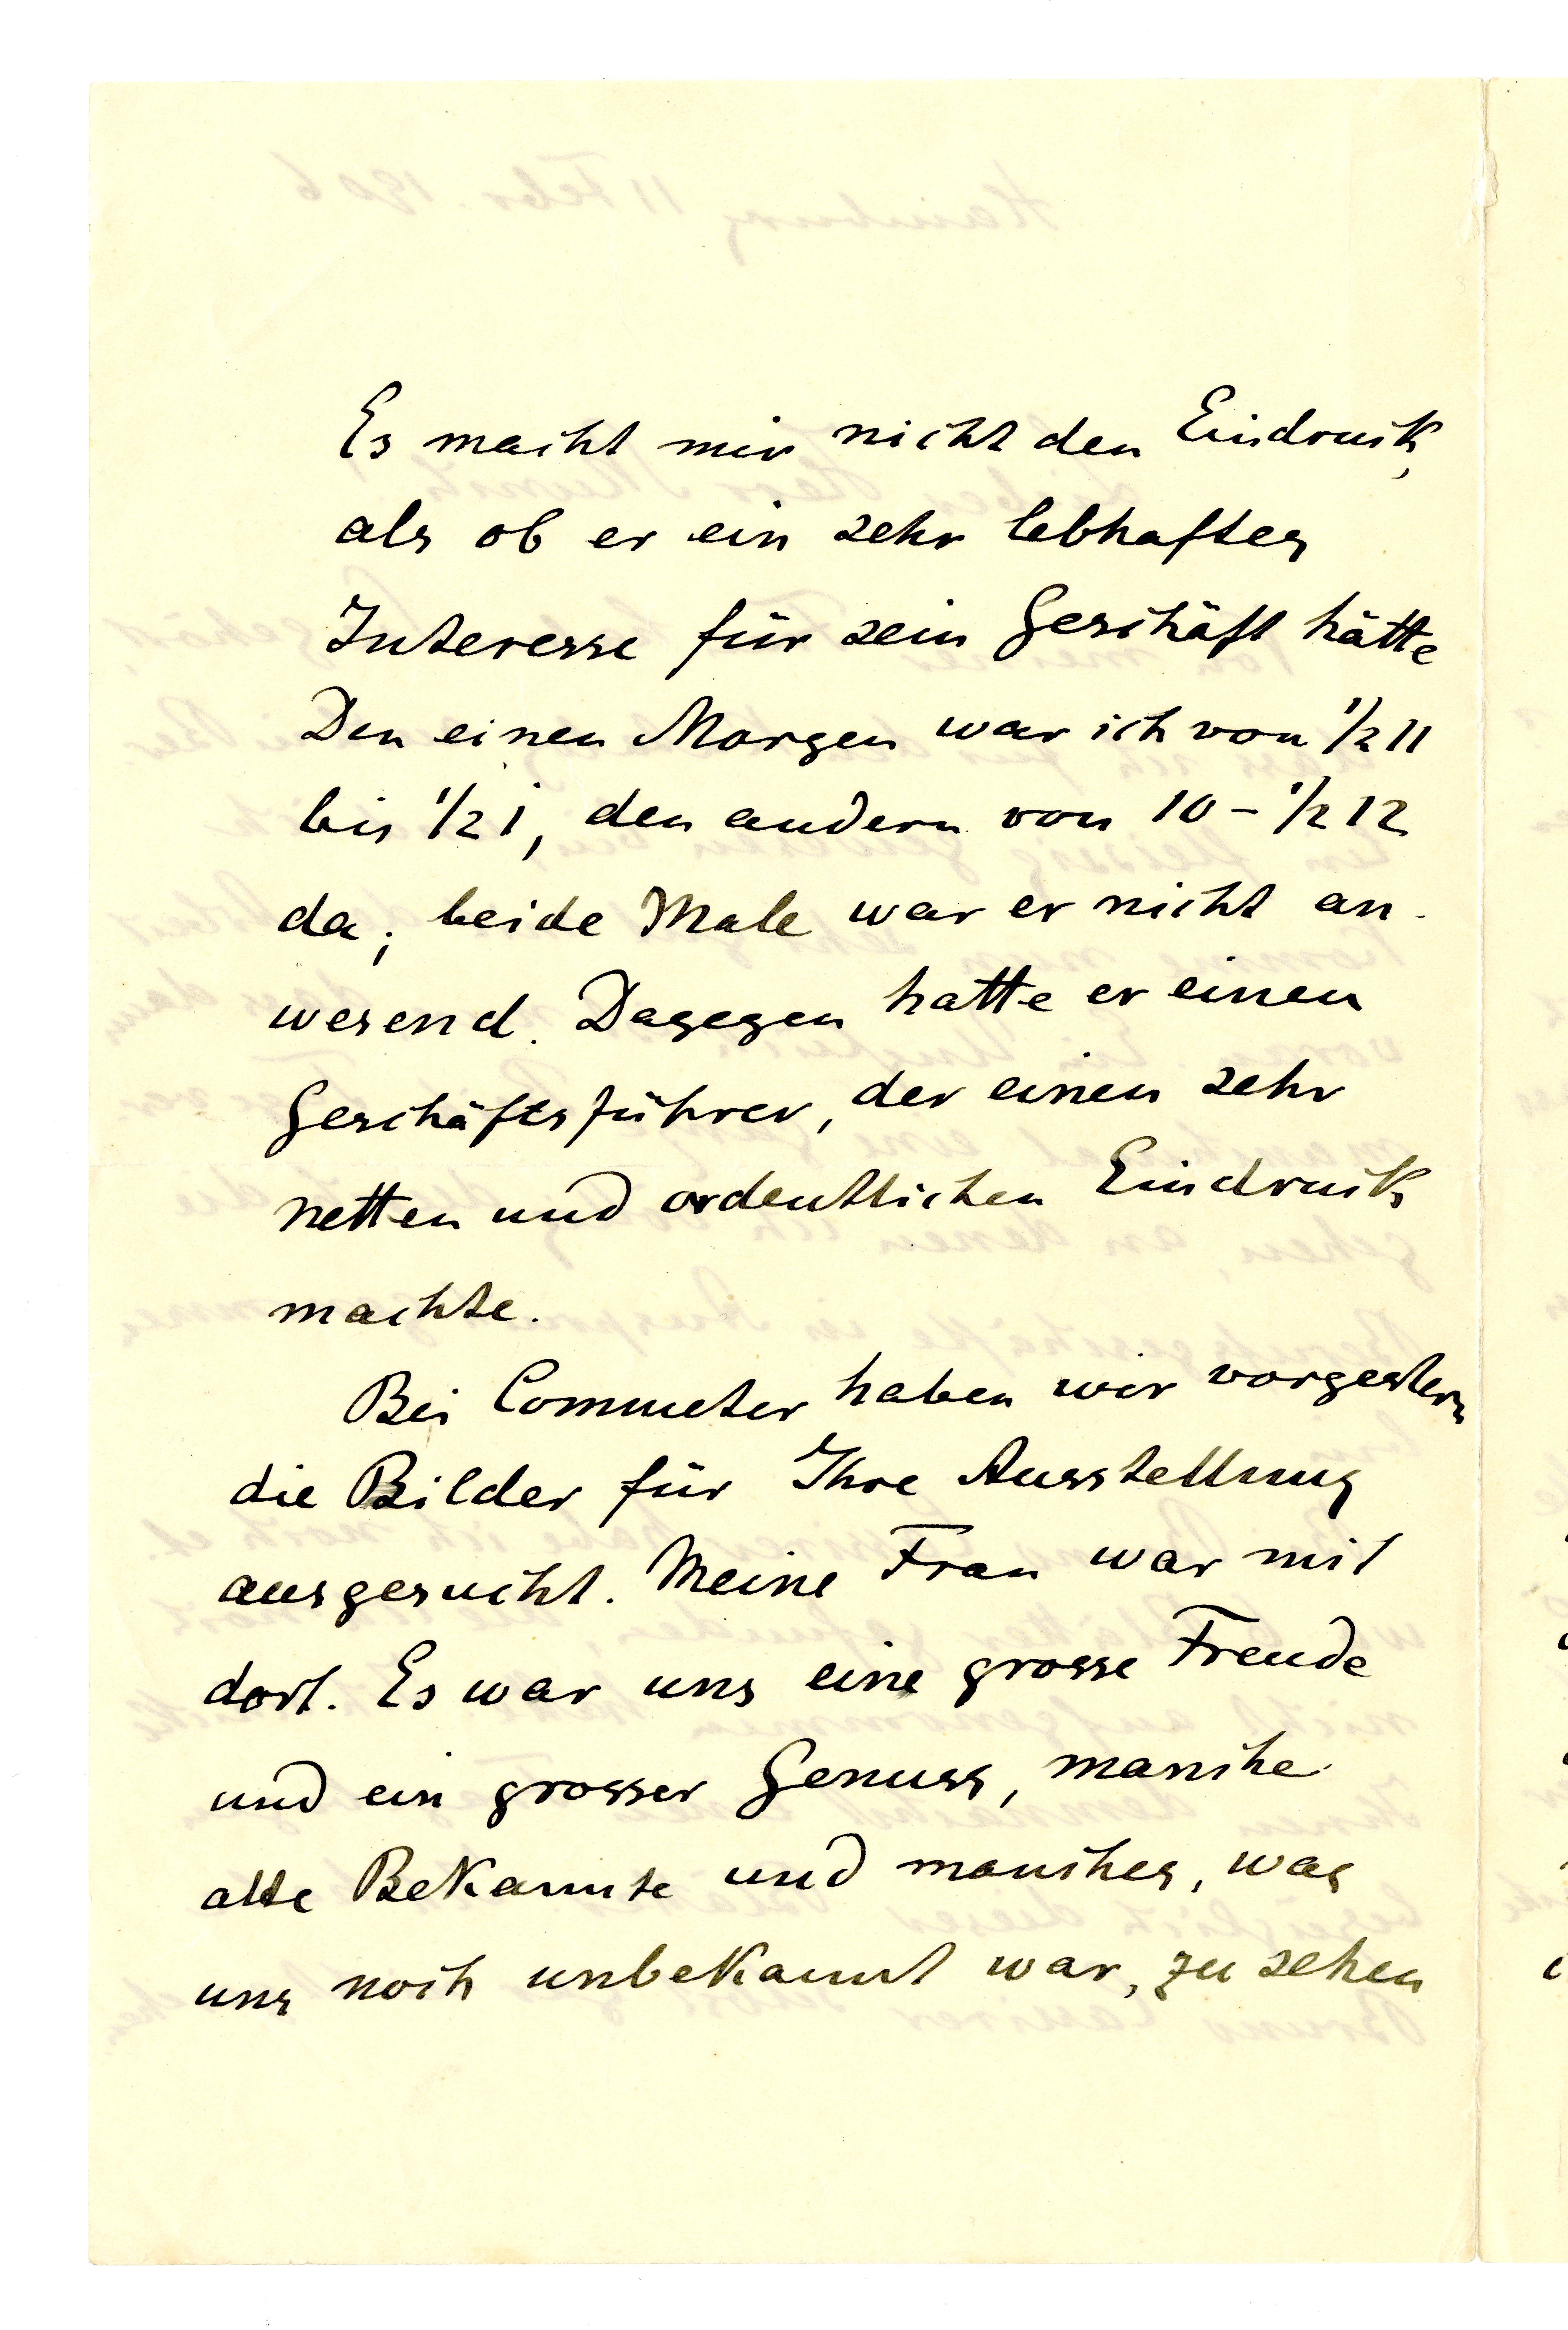 Es macht mir nicht den Eindruck,
als ob er ein sehr lebhaftes
Interesse für sein Geschäft hätte
Den einen Morgen war ich von ½ 11
bis ½ 1, den andern von 10 – ½ 12
da; beide Male war er nicht an-
wesend. Dagegen hatte er einen
Geschäftsführer, der einen sehr
netten und ordentlichen Eindruck
machte.
Bei Commeter haben wir vorgestern
die Bilder für Ihre Ausstellung
ausgesucht. Meine Frau war mit
dort. Es war uns eine grosse Freude
und ein grosser Genuss, manche
alte Bekannte und manches, was
uns noch unbekannt war, zu sehen